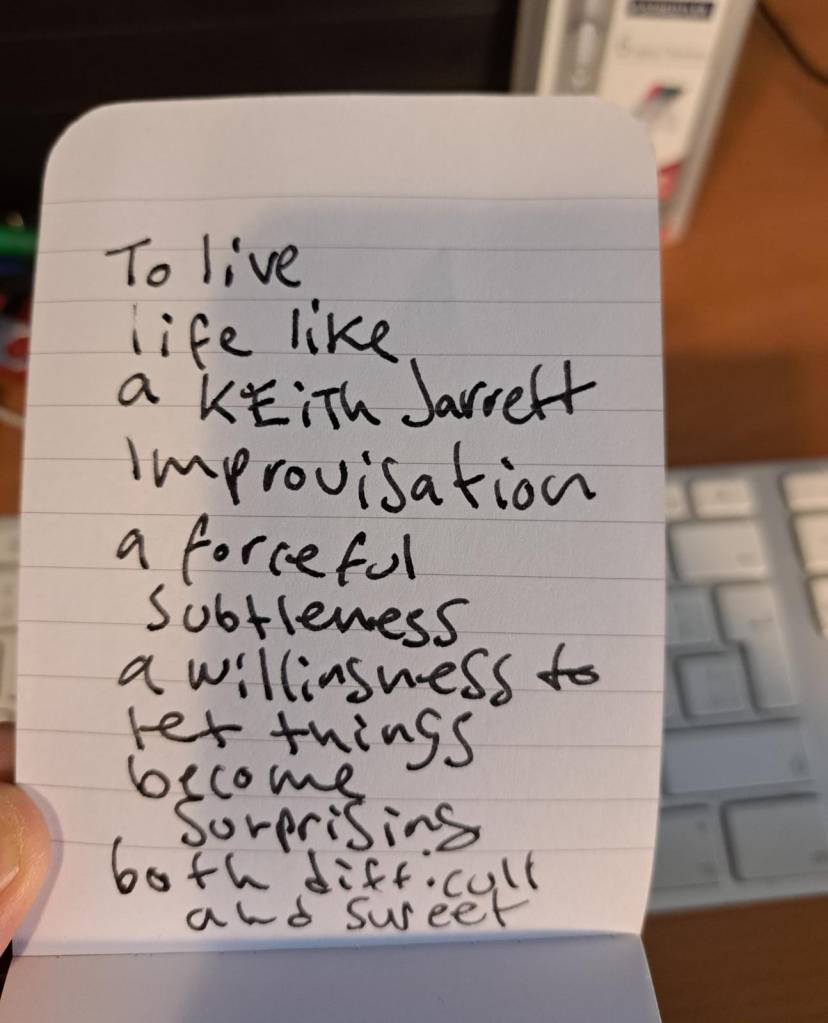 To live
life like
a KEITh Jarrett
Improvisation
a forceful
subtleness
a willingness to
let things
become
surprising
both difficult
and sweet